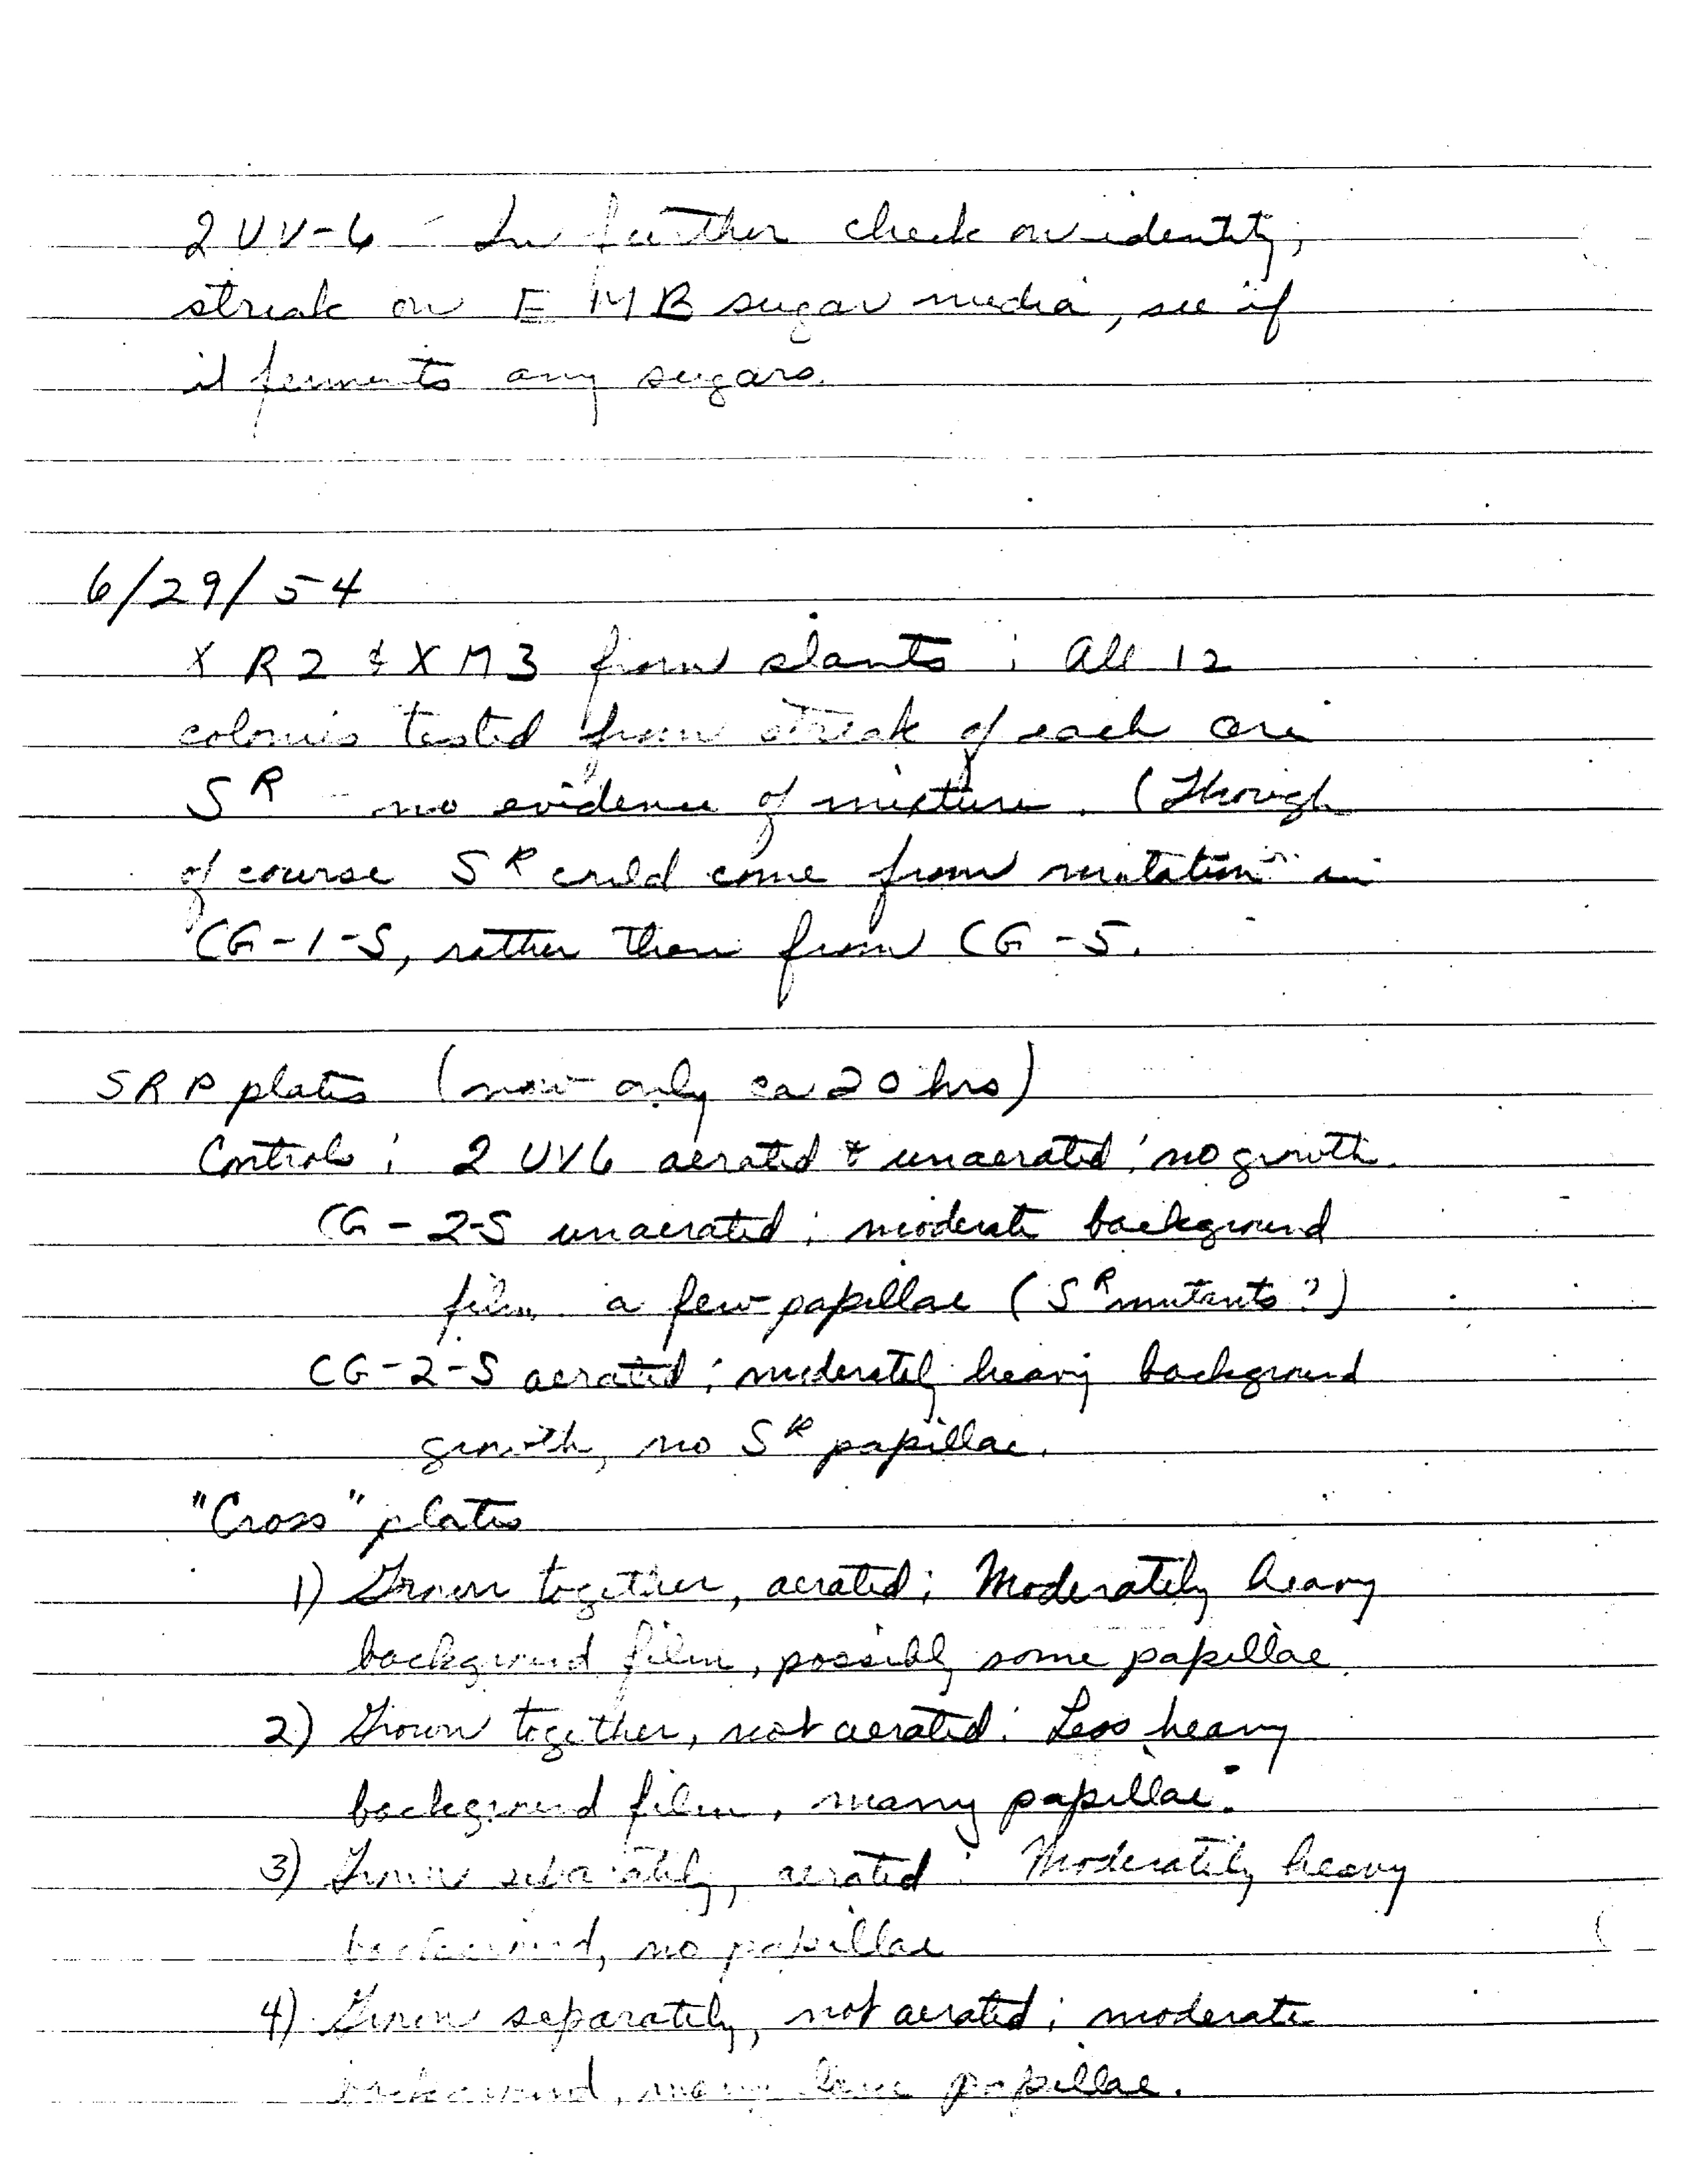 2UV-6 - In further check on identity,
streak on EMB sugar media, see if
it ferments any sugars.
6/29/54
XR2 & XM3 from slants: All 12
colonies tested from streak of each are
S^R - no evidence of mixture. (Though
of course S^R could come from mutation in
CG-1-S, rather than from CG-5.
SRP plates (now only ca 20 hrs)
Controls: 2UV6 aerated & unaerated: no growth.
CG-2-S unaerated: moderate background
film, a few papillae (S^R mutants?)
CG-2-S aerated: moderately heavy background
growth, no S^R papillae.
"Cross" plates
1) Grown together, aerated: Moderately heavy
background film, possibly some papillae.
2) Grown together, not aerated: Less heavy
background film, many papillae.
3) Grown separately, aerated: Moderately heavy
background, no papillae
4) Grown separately, not aerated: moderate
background, many papillae.